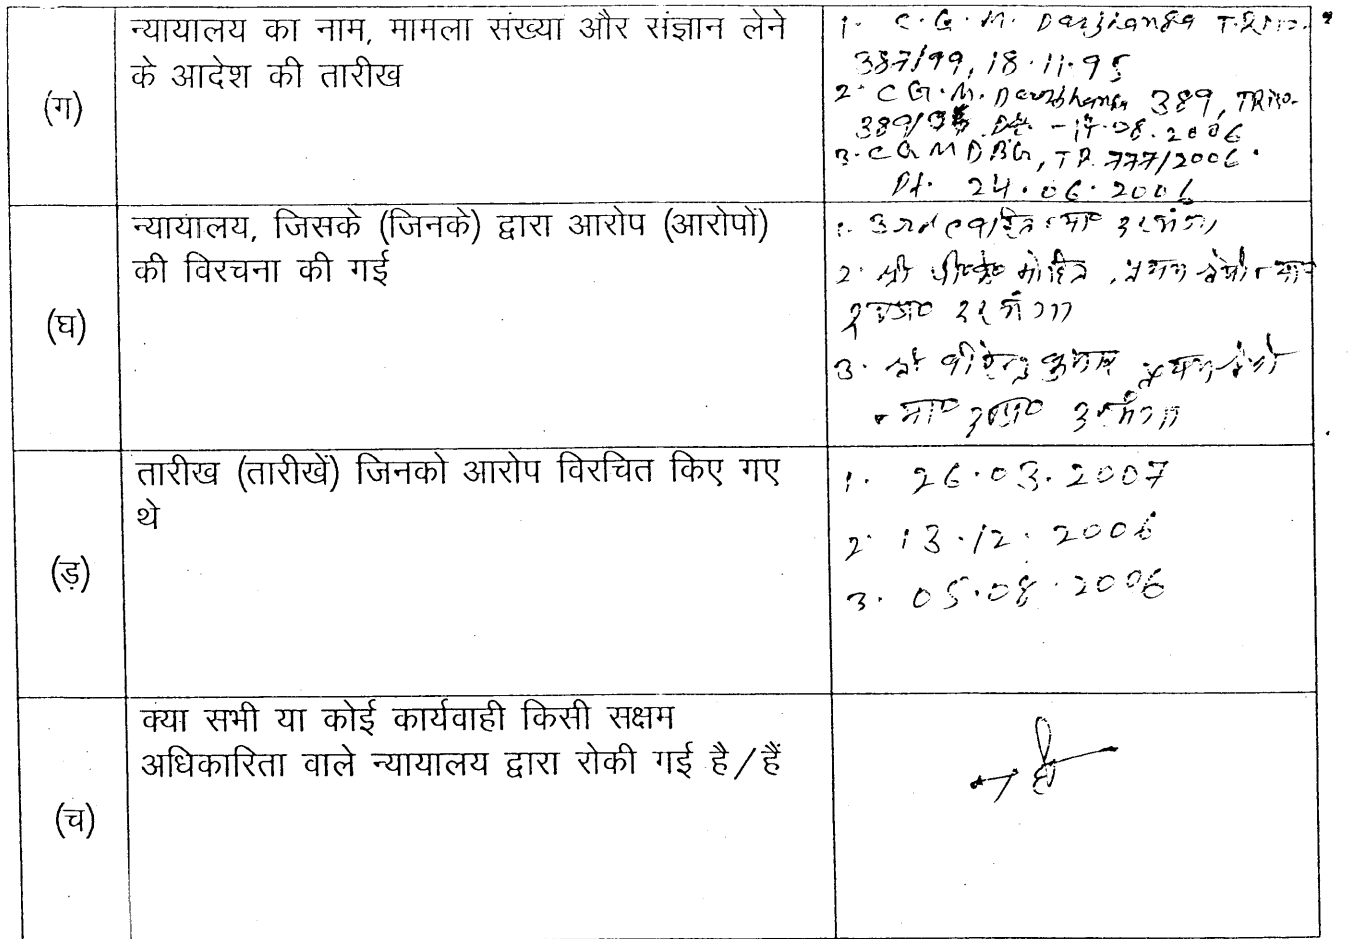 (ग)
न्यायालय का नाम, मामला संख्या और संज्ञान लेने
के आदेश की तारीख
1. C.G.M. Darbhanga T.R.No.
387/99, 18.11.95
2. C.G.M. Darbhanga 389, TRNo.
389/ Dt. -17.08.2006
3. C G M DBG, TR. 777/2006.
Dt. 24.06.2006
(घ)
न्यायालय, जिसके (जिनके) द्वारा आरोप (आरोपों)
की विरचना की गई
1. दरभंगा
2. श्री पी०के० मोहित, प्रथम श्रेणी न्या०
दरभंगा
3. श्री वीरेन्द्र कुमार प्रथम श्रेणी
न्या० दण्डा० दरभंगा
(ड़)
तारीख (तारीखें) जिनको आरोप विरचित किए गए
थे
1. 26.03.2007
2. 13.12.2006
3. 05.08.2006
(च)
क्या सभी या कोई कार्यवाही किसी सक्षम
अधिकारिता वाले न्यायालय द्वारा रोकी गई है/हैं